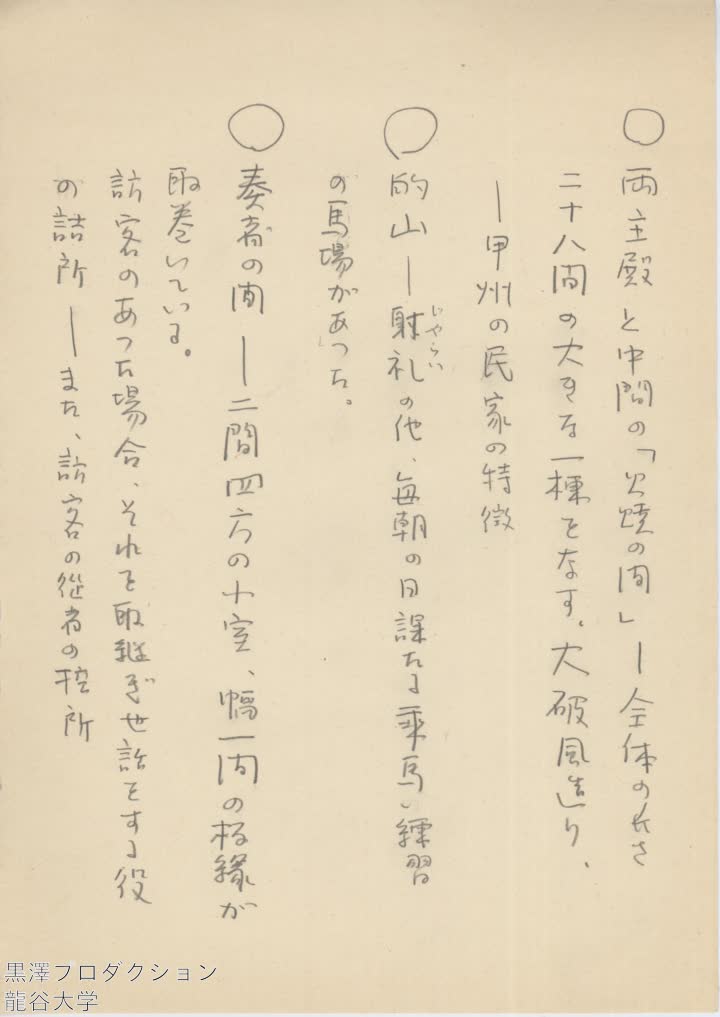 ○ 両主殿と中間の「公焼の間」ー全体の長さ
二十八間の大きな一棟をなす。大破風造り、
ー甲州の民家の特徴
○ 的山ー射礼の他、毎朝の日課たる乗馬練習
じゃらい
の馬場があった。
○ 奏者の間ー二間四方の小室、幅一間の板縁が
取巻いている。
訪客のあった場合、それを取継ぎ世話をする役
の詰所ーまた、訪客の從者の控所
黒澤プロダクション
龍谷大学